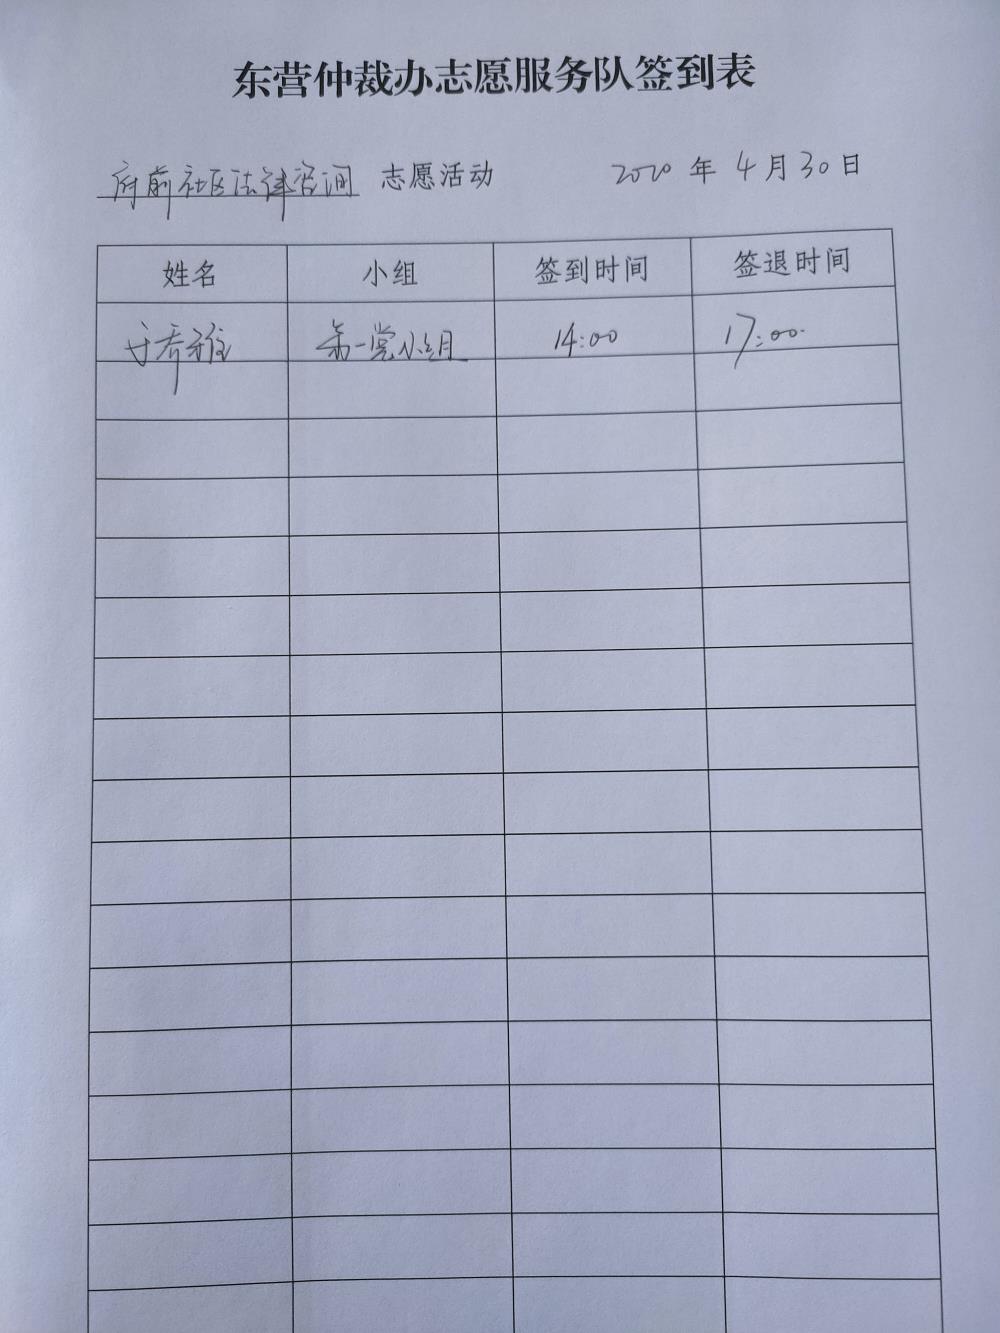 东营仲裁办志愿服务队签到表
府前社区法律咨询 志愿活动 2020 年 4 月 30 日
姓名 小组 签到时间 签退时间
第一党小组 14:00 17:00